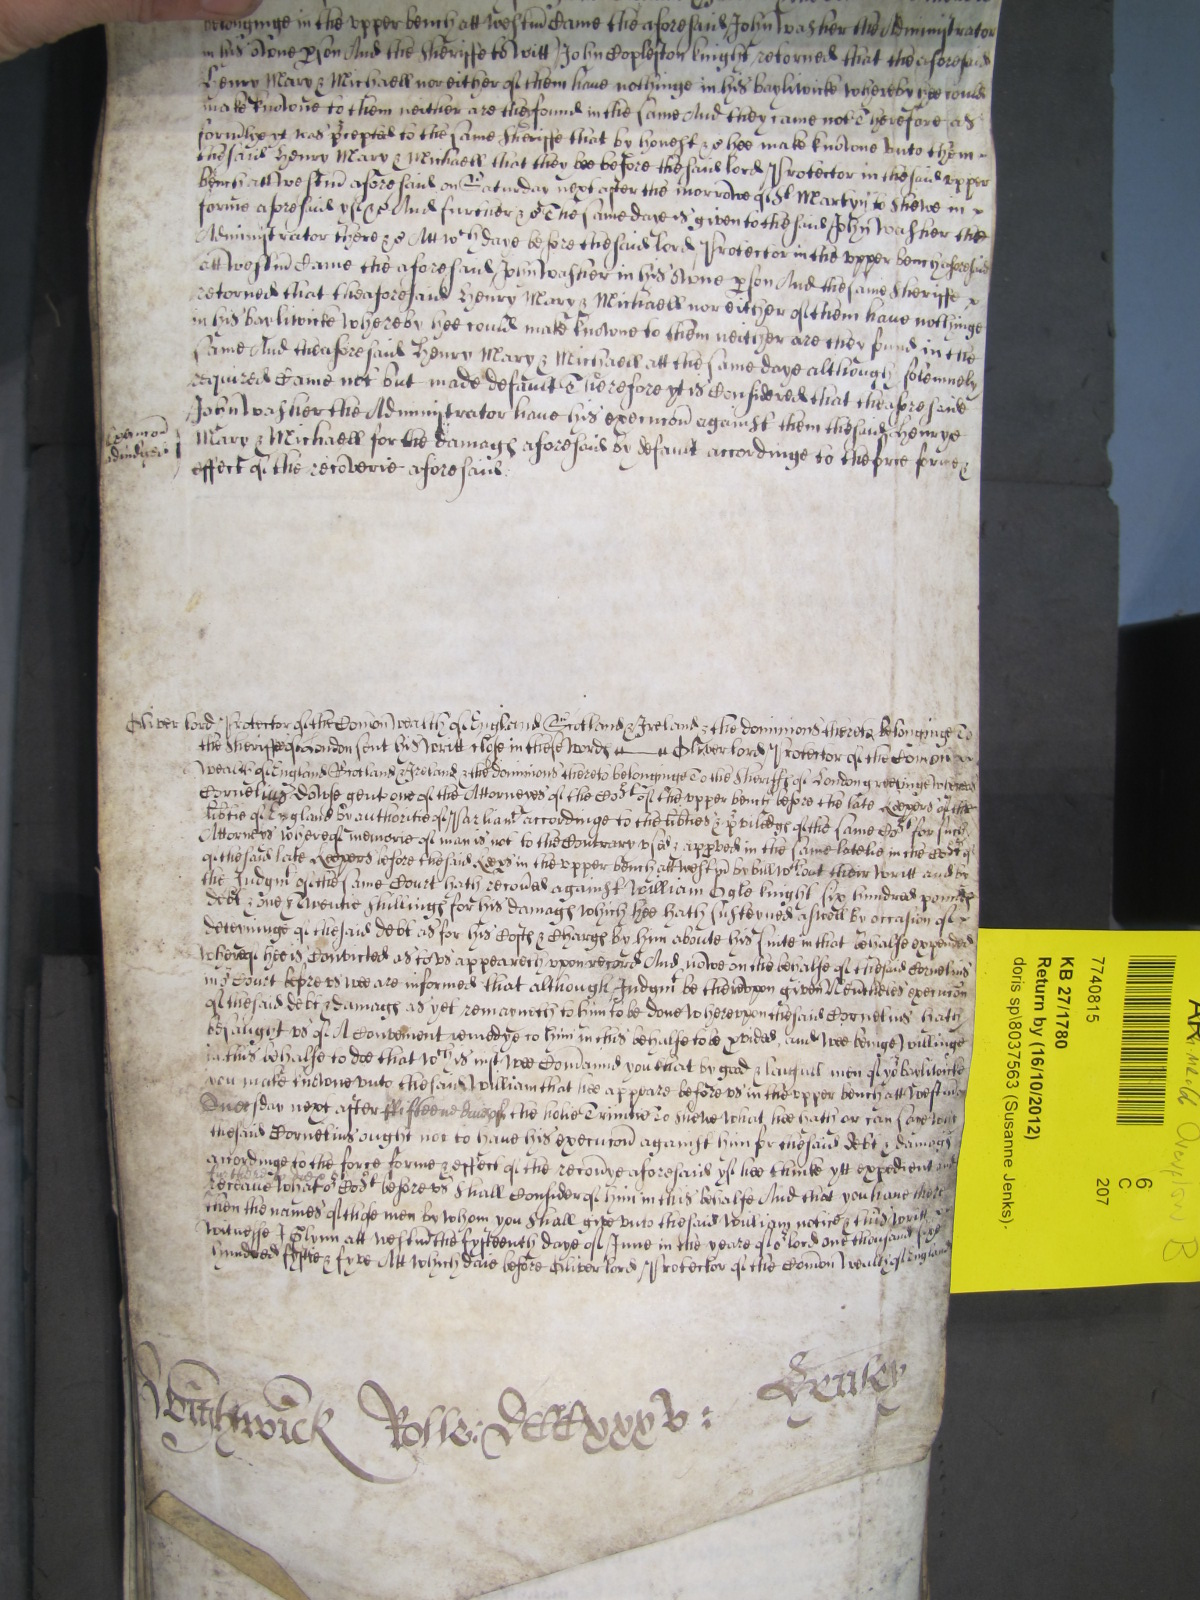 belonginge in the vpper bench att Westm Came the aforesaid John Washer the Administrator
in his owne pson And the Sheriffe to Witt John Copleston knight retorned that the aforesaid
Henry Mary & Michaell nor either of them haue nothinge in his bayliwicke whereby hee could
make knowne to them neither are they found in the same And they came not Therefore as
formlye yt was pcepted to the same Sheriffe that by honest &c hee make knowne vnto them
the said Henry Mary & Michaell that they bee before the said lord Protector in the said vpper
bench att Westm aforesaid on Saturday next after the morrowe of St Martyn to shewe in
forme aforesaid yf &c And further &c The same daye is given to the said John Washer the
Administrator there &c Att wch daye before the said lord Protector in the vpper bench aforesaid
att Westm Came the aforesaid John Washer in his owne pson And the same Sheriffe
retorned that the aforesaid Henry Mary & Michaell nor either of them haue nothinge
in his bayliwicke whereby hee could make knowne to them neither are they found in the
same And the aforesaid Henry Mary & Michaell att the same daye although solemnely
required Came not but made default Therefore yt is Considered that the aforesaid
John Washer the Administrator haue his execucon against them the said Henrye
Mary & Michaell for the damags aforesaid by default accordinge to the force forme &
effect of the recoverie aforesaid
Oliver lord Protector of the Comon Wealth of England Scotland & Ireland & the dominions thereto belonginge To
the Sheriffe of London sent his Writt close in these Words Oliver lord Protector of the Comon
Wealth of England Scotland & Ireland & the dominions thereto belonginge To the Sheriffs of London greetinge Whereas
Cornelius Dowse gent one of the Attorneyes of the Cort of the vpper bench before the late Keepers of the
libtie of England by authoritie of Parliamt accordinge to the libties & priviledgs of the same Cort for such
Attorneys whereof memorie of man is not to the Contrary vsed & appved in the same latelie in the Cort of
of the said late Keepers before the said Keeps in the vpper bench att Westm by bill wthout their Writt and by
the Judgmt of the same Court hath recoued against William Ogle knight six hundred pounds
debt & one & twentie shillings for his damags which hee hath susteyned aswell by occasion of
deteyninge of the said debt as for his Costs & Chargs by him aboute his suite in that behalfe expended
whereof hee is Convicted as to vs appeareth vpon record And nowe on the behalfe of the said Cornelius
in or Court before vs Wee are informed that although Judgmt be therevpon given Neutheles execucon
of the said debt & damags as yet remayneth to him to be done Wherevpon the said Cornelius hath
besaught vs of A Convenient remedye to him in this behalfe to be pvided, and Wee beinge Willinge
in this behalfe to doe that wch is iust Wee Comannd you that by good & laufull men of yor bayliwicke
you make knowne vnto the said William that hee appeare before vs in the vpper bench att Westm
next after fifteene dayes of the holie Trinitie To shewe What hee hath or can saye Why
the said Cornelius ought not to haue his execucon against him for the said debt & damags
accordinge to the force forme & effect of the recouye aforesaid yf hee thinke ytt expedient and
receaue What or Cort before vs shall Consider of him in this behalfe And that you haue there
then the names of those men by Whom you shall giue vnto the said William notice & this Writt
Witnesse J Glynn att Westm the fyfteenth daye of June in the yeare of or lord one thousand sixe
hundred fyftie & fyve Att Which daie before Oliver lord Protector of the Comon Wealth of England
Rolle: DCCCxxxv:
7740815
KB 27/1780
Return by (16/10/2012)
doris sp\8037563 (Susanne Jenks).
207
6
C